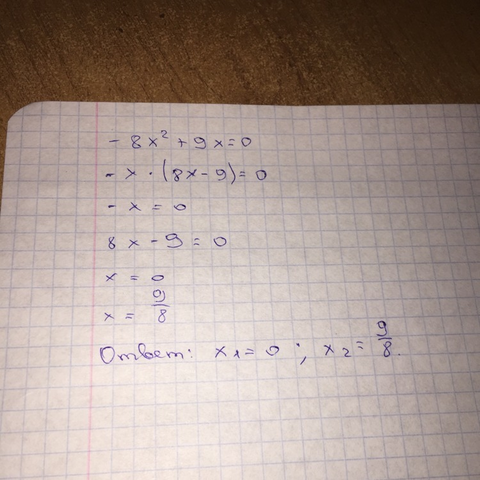 - 8x² + 9x = 0
- x · (8x - 9) = 0
- x = 0
8x - 9 = 0
x = 0
x = 9/8
Ответ: x₁ = 0 ; x₂ = 9/8.